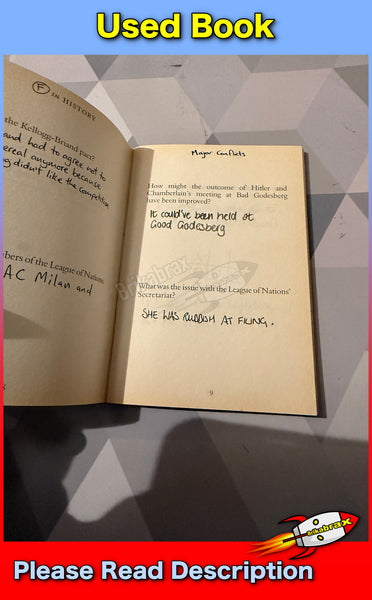 Used Book
F IN HISTORY
the Kellogg-Briand pact?
and had to agree not to
ereal anymore because
g didn't like the competition
mbers of the League of Nations
AC Milan and
Major Conflicts
How might the outcome of Hitler and
Chamberlain's meeting at Bad Godesberg
have been improved?
It could've been held at
Good Godesberg
What was the issue with the League of Nations'
Secretariat?
SHE WAS RUBBISH AT FILING.
9
Brikabrax
brikabrax
Please Read Description